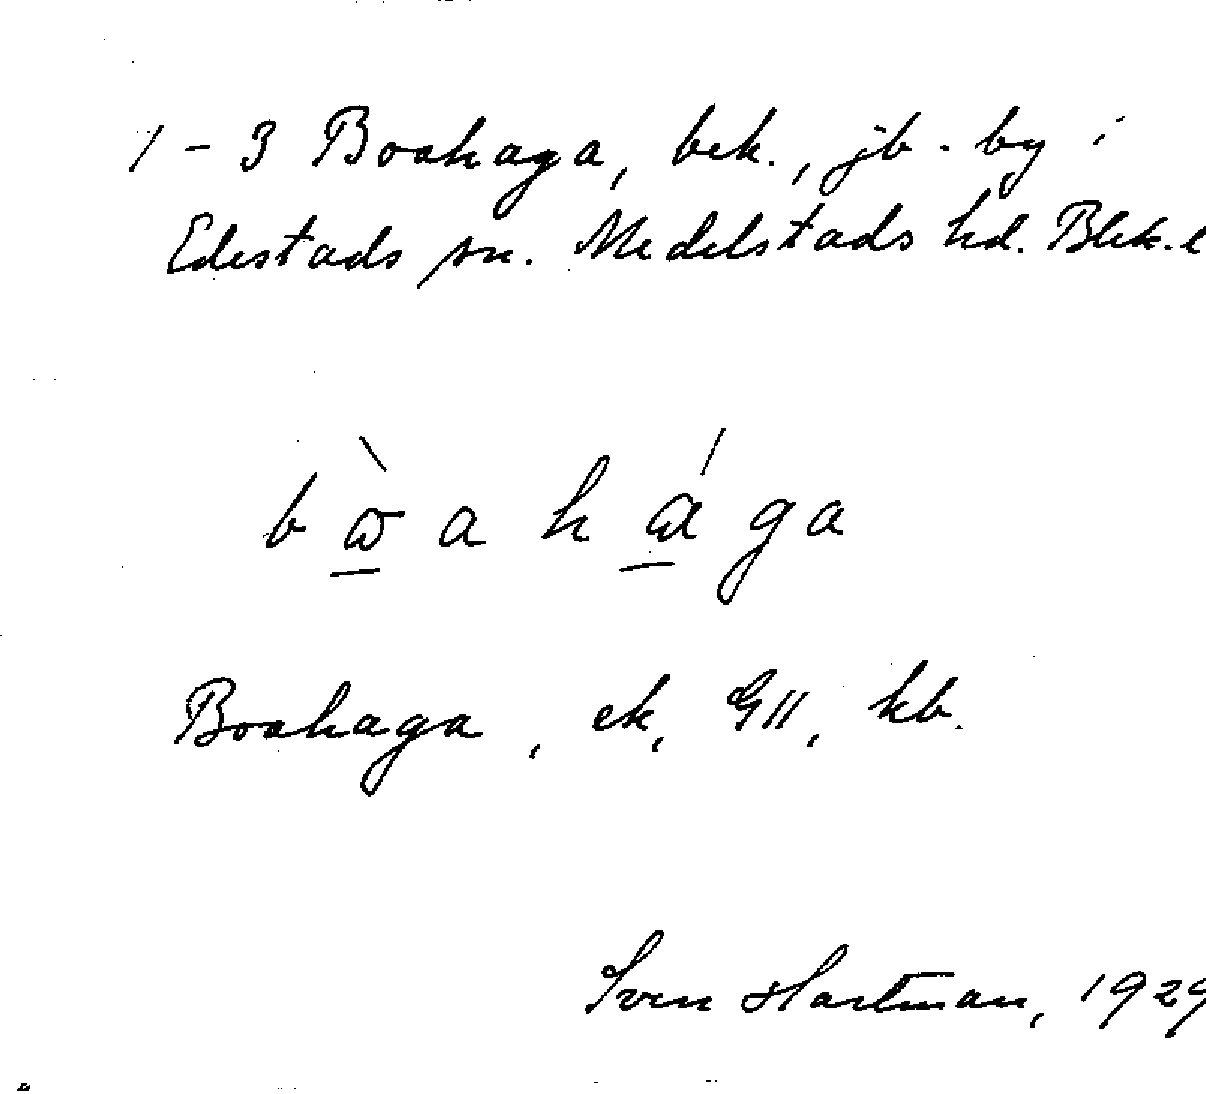 1-3 Boahaga, bek., jb. by i
Edestads sn. Medelstads hd. Blek. l
bàahága
Boahaga, ek, GII, kb.
Sven Hartman, 1929